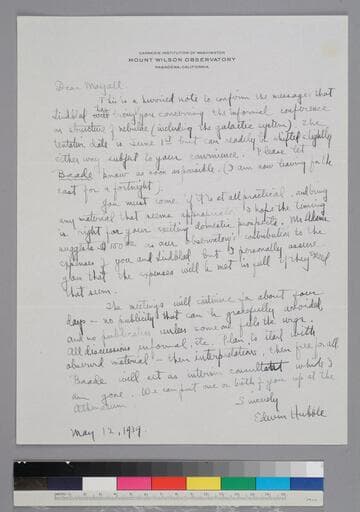 CARNEGIE INSTITUTION OF WASHINGTON
MOUNT WILSON OBSERVATORY
PASADENA, CALIFORNIA
Dear Mayall:
This is a hurried note to confirm the message that
Lindblad has you concerning the informal conference
on structure of nebulae (including the galactic system). The
tentative date is June 1st but can readily be shifted slightly
either way subject to your convenience. Please let
Baade know as soon as possible. (I am now leaving for the
east for a fortnight).
You must come if it is at all practical, and bring
any material that seems appropriate. I hope the timing
is right for your exciting domestic prospects. Mr Adams
suggests $100 as our observatory's contribution to the
expenses of you and Lindblad but I personally assure
you that the expenses will be met in full if they exceed
that sum.
The meetings will continue for about four
days - no publicity that can be gracefully avoided,
and no publication unless someone feels the urge.
All discussions informal, etc. Plan to start with
observed material - then interpretations, then free for all.
Baade will act as interim consultant while I
am gone. We can put one or both of you up at the
Athenaeum.
Sincerely
Edwin Hubble
May 12, 1939.